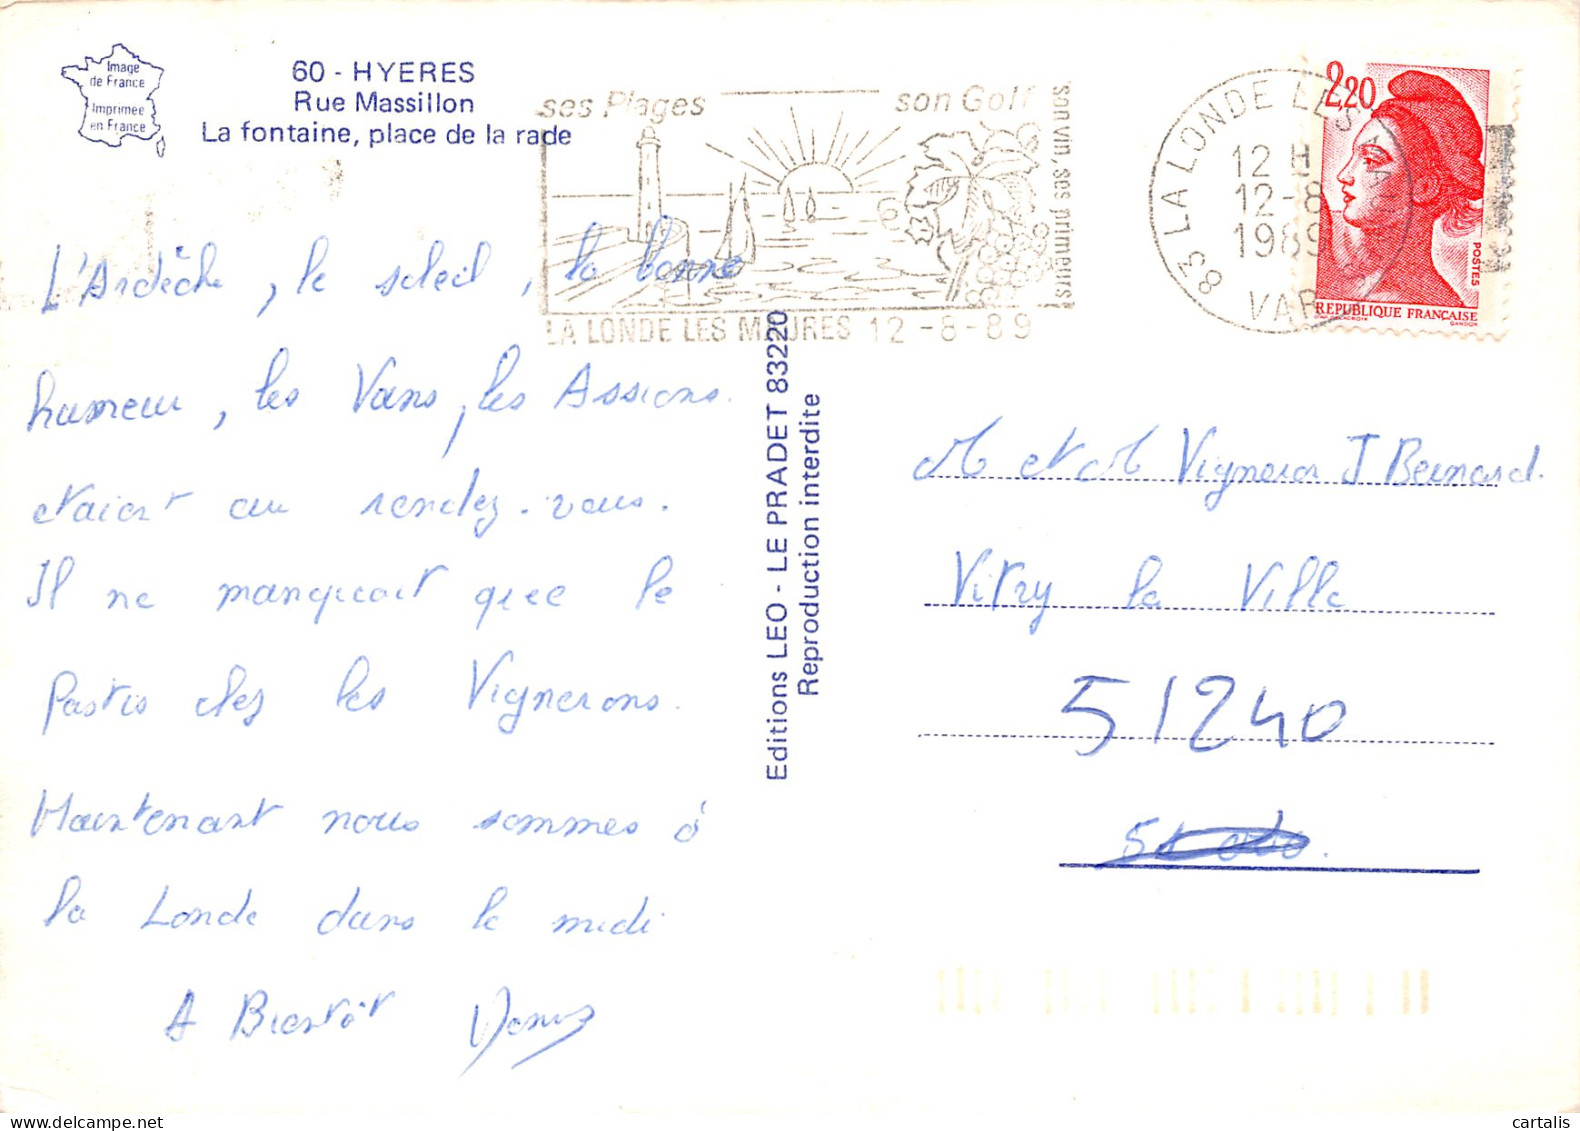 Image
de France
Imprimée
en France
60 - HYERES
Rue Massillon
La fontaine, place de la rade
ses Plages son Golf
son vin, ses primeurs
LA LONDE LES MAURES 12-8-89
83 LA LONDE LES MAURES
12 H
12-8
1989
VAR
2,20
POSTES
REPUBLIQUE FRANÇAISE
GANDON
L'Ardèche, le soleil, la bonne
humeur, les Vans, les Assions.
etaient au rendez-vous.
Il ne manquait que le
Pastis chez les Vignerons.
Maintenant nous sommes à
la Londe dans le midi
A Bientôt
Editions LEO - LE PRADET 83220
Reproduction interdite
M et M Vigneron J Bernard.
Vitry la Ville
51240